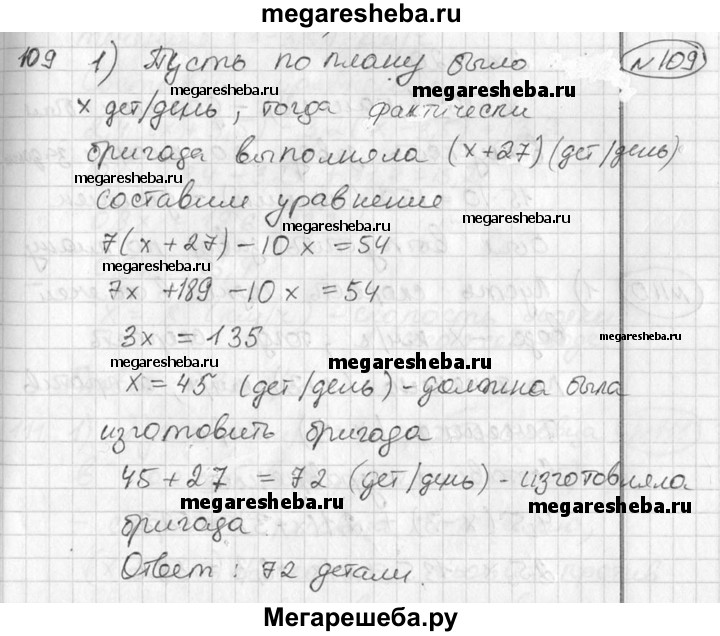 megaresheba.ru
109 1) Пусть по плану было №109
megaresheba.ru megaresheba.ru
х дет/день, тогда фактически
бригада выполняла (х+27) (дет/день)
megaresheba.ru
составим уравнение
megaresheba.ru megaresheba.ru
7(х + 27) - 10 х = 54
megaresheba.ru
7х +189 - 10 х = 54
3х = 135 megaresheba.ru
megaresheba.ru megaresheba.ru
х = 45 (дет/день) - должна была
изготовить бригада
45 + 27 = 72 (дет/день) - изготовляла
megaresheba.ru megaresheba.ru megaresheba.ru
бригада
Ответ : 72 детали.
Мегарешеба.ру